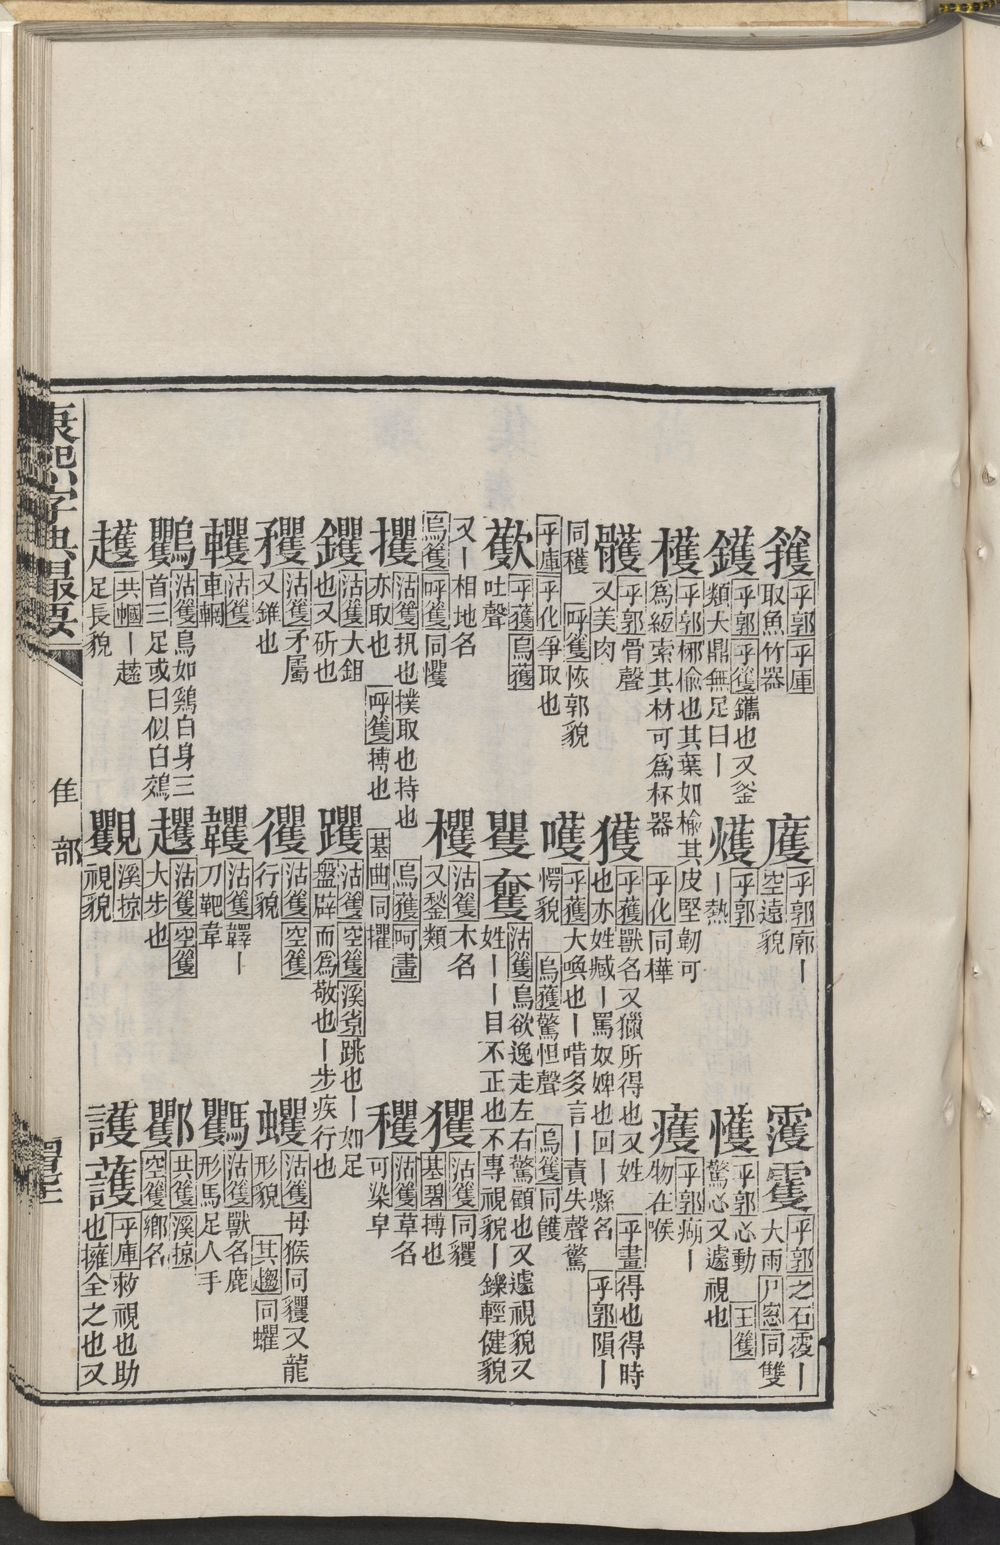 籆乎郭乎庫取魚竹器 㢌乎郭廓丨空遠貌 䨥靃乎郭之石䨥丨大雨尸窓同雙
鑊乎郭乎篗鑴也又釜類大鼎無足曰丨 㸌乎郭丨熱 㦜乎郭心動驚必又遽視也王篗
檴乎郭梛偷也其葉如榆其皮堅韌可為絙索其材可為杯器乎化同樺 㿋乎郭痂丨物在喉
髊乎郭骨聲又美肉 獲乎獲獸名又獵所得也又姓也亦姓臧丨罵奴婢也回丨縣名乎畫得也得時乎郭隕丨
同穫呼篗恢郭貌乎庫乎化爭取也 嚄乎獲大喚也丨唶多言丨責失聲驚愕貌烏獲驚怛聲烏篗同䪝
歡乎獲烏獲吐聲 矍奪姓丨丨目不正也不專視貌丨鑠輕健貌沽篗鳥欲逸走左右驚顧也又遽視貌又
又丨相地名烏篗呼篗同戄 欔沽篗木名又鐅類 玃沽篗同貜基碧搏也
攫沽篗扟也撲取也持也亦取也呼篗搏也烏獲呵畫基曲同擢 穫沽篗草名可染皁
钁沽篗大鉏也又斫也 躩沽篗空篗溪㒸跳也丨如足盤辟而為敬也丨步疾行也
矡沽篗矛屬又錐也 彏沽篗空篗行貌 蠼沽篗母猴同貜又龍形貌其趨同蠷
轥沽篗車輞 韄沽篗韄丨刀靶韋 䮸沽篗獸名鹿形馬足人手
鸜沽篗鳥如鷄白身三首三足或曰似白鵁 躩沽篗空篗大步也 酈共篗溪掠空篗鄉名
趯共幗丨趚足長貌 矙溪掠視貌 護頀乎庫救視也助也擁全之也又
康熙字典最要
隹部